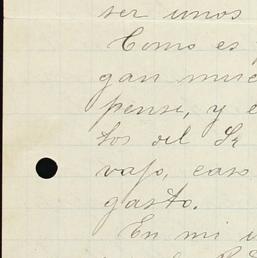 ser unos
Como es
gan muc
pense, y e
tos del Sr
vajo, caso
gasto.
En mi